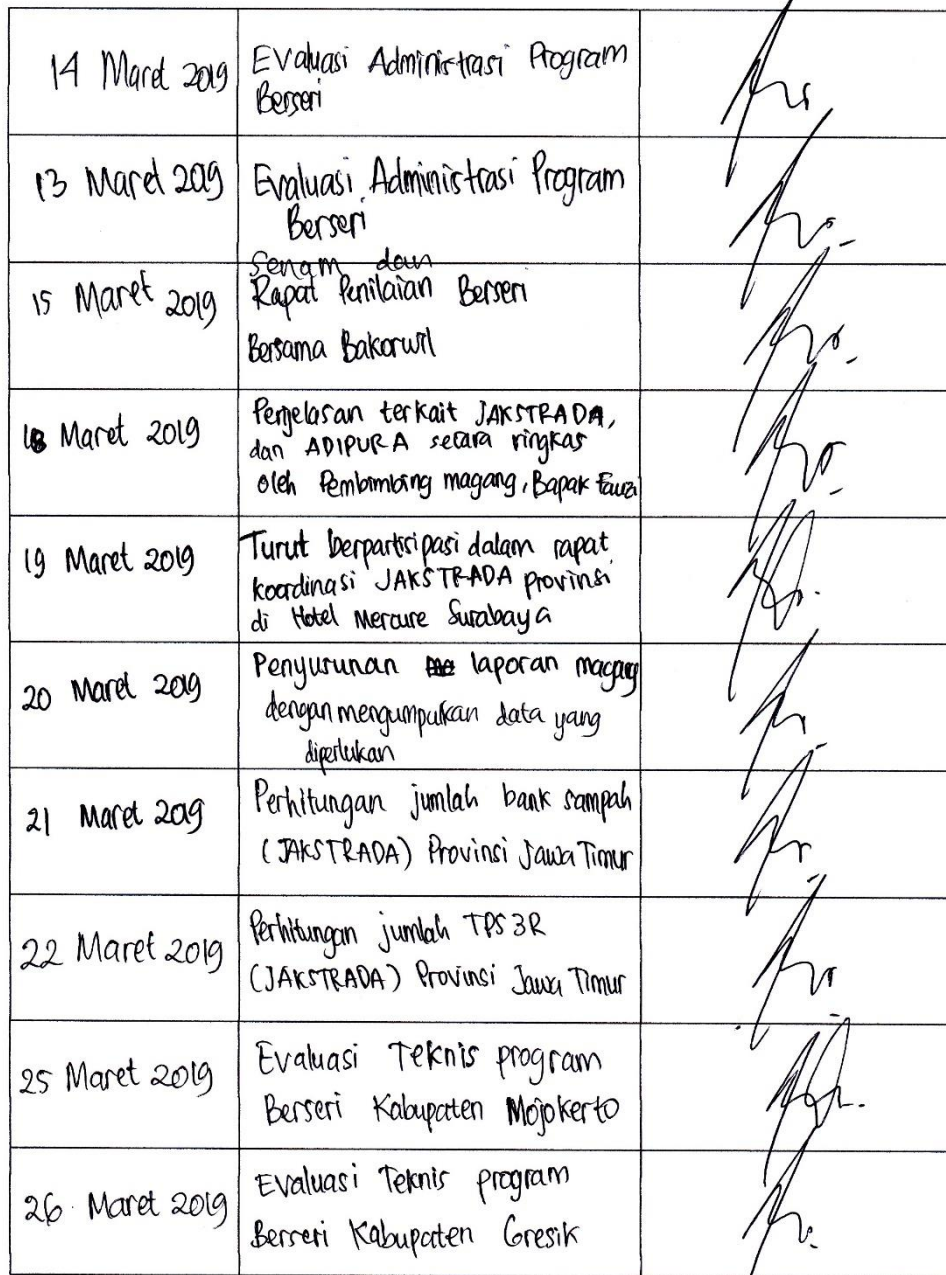 14 Maret 2019
Evaluasi Administrasi Program
Berseri
13 Maret 2019
Evaluasi Administrasi Program
Berseri
15 Maret 2019
Senam dan
Rapat Penilaian Berseri
Bersama Bakorwil
18 Maret 2019
Penjelasan terkait JAKSTRADA,
dan ADIPURA secara ringkas
oleh Pembimbing magang, Bapak Fauzi
19 Maret 2019
Turut berpartisipasi dalam rapat
koordinasi JAKSTRADA provinsi
di Hotel Mercure Surabaya
20 Maret 2019
Penyusunan laporan magang
dengan mengumpulkan data yang
diperlukan
21 Maret 2019
Perhitungan jumlah bank sampah
(JAKSTRADA) Provinsi Jawa Timur
22 Maret 2019
Perhitungan jumlah TPS 3R
(JAKSTRADA) Provinsi Jawa Timur
25 Maret 2019
Evaluasi Teknis program
Berseri Kabupaten Mojokerto
26. Maret 2019
Evaluasi Teknis program
Berseri Kabupaten Gresik